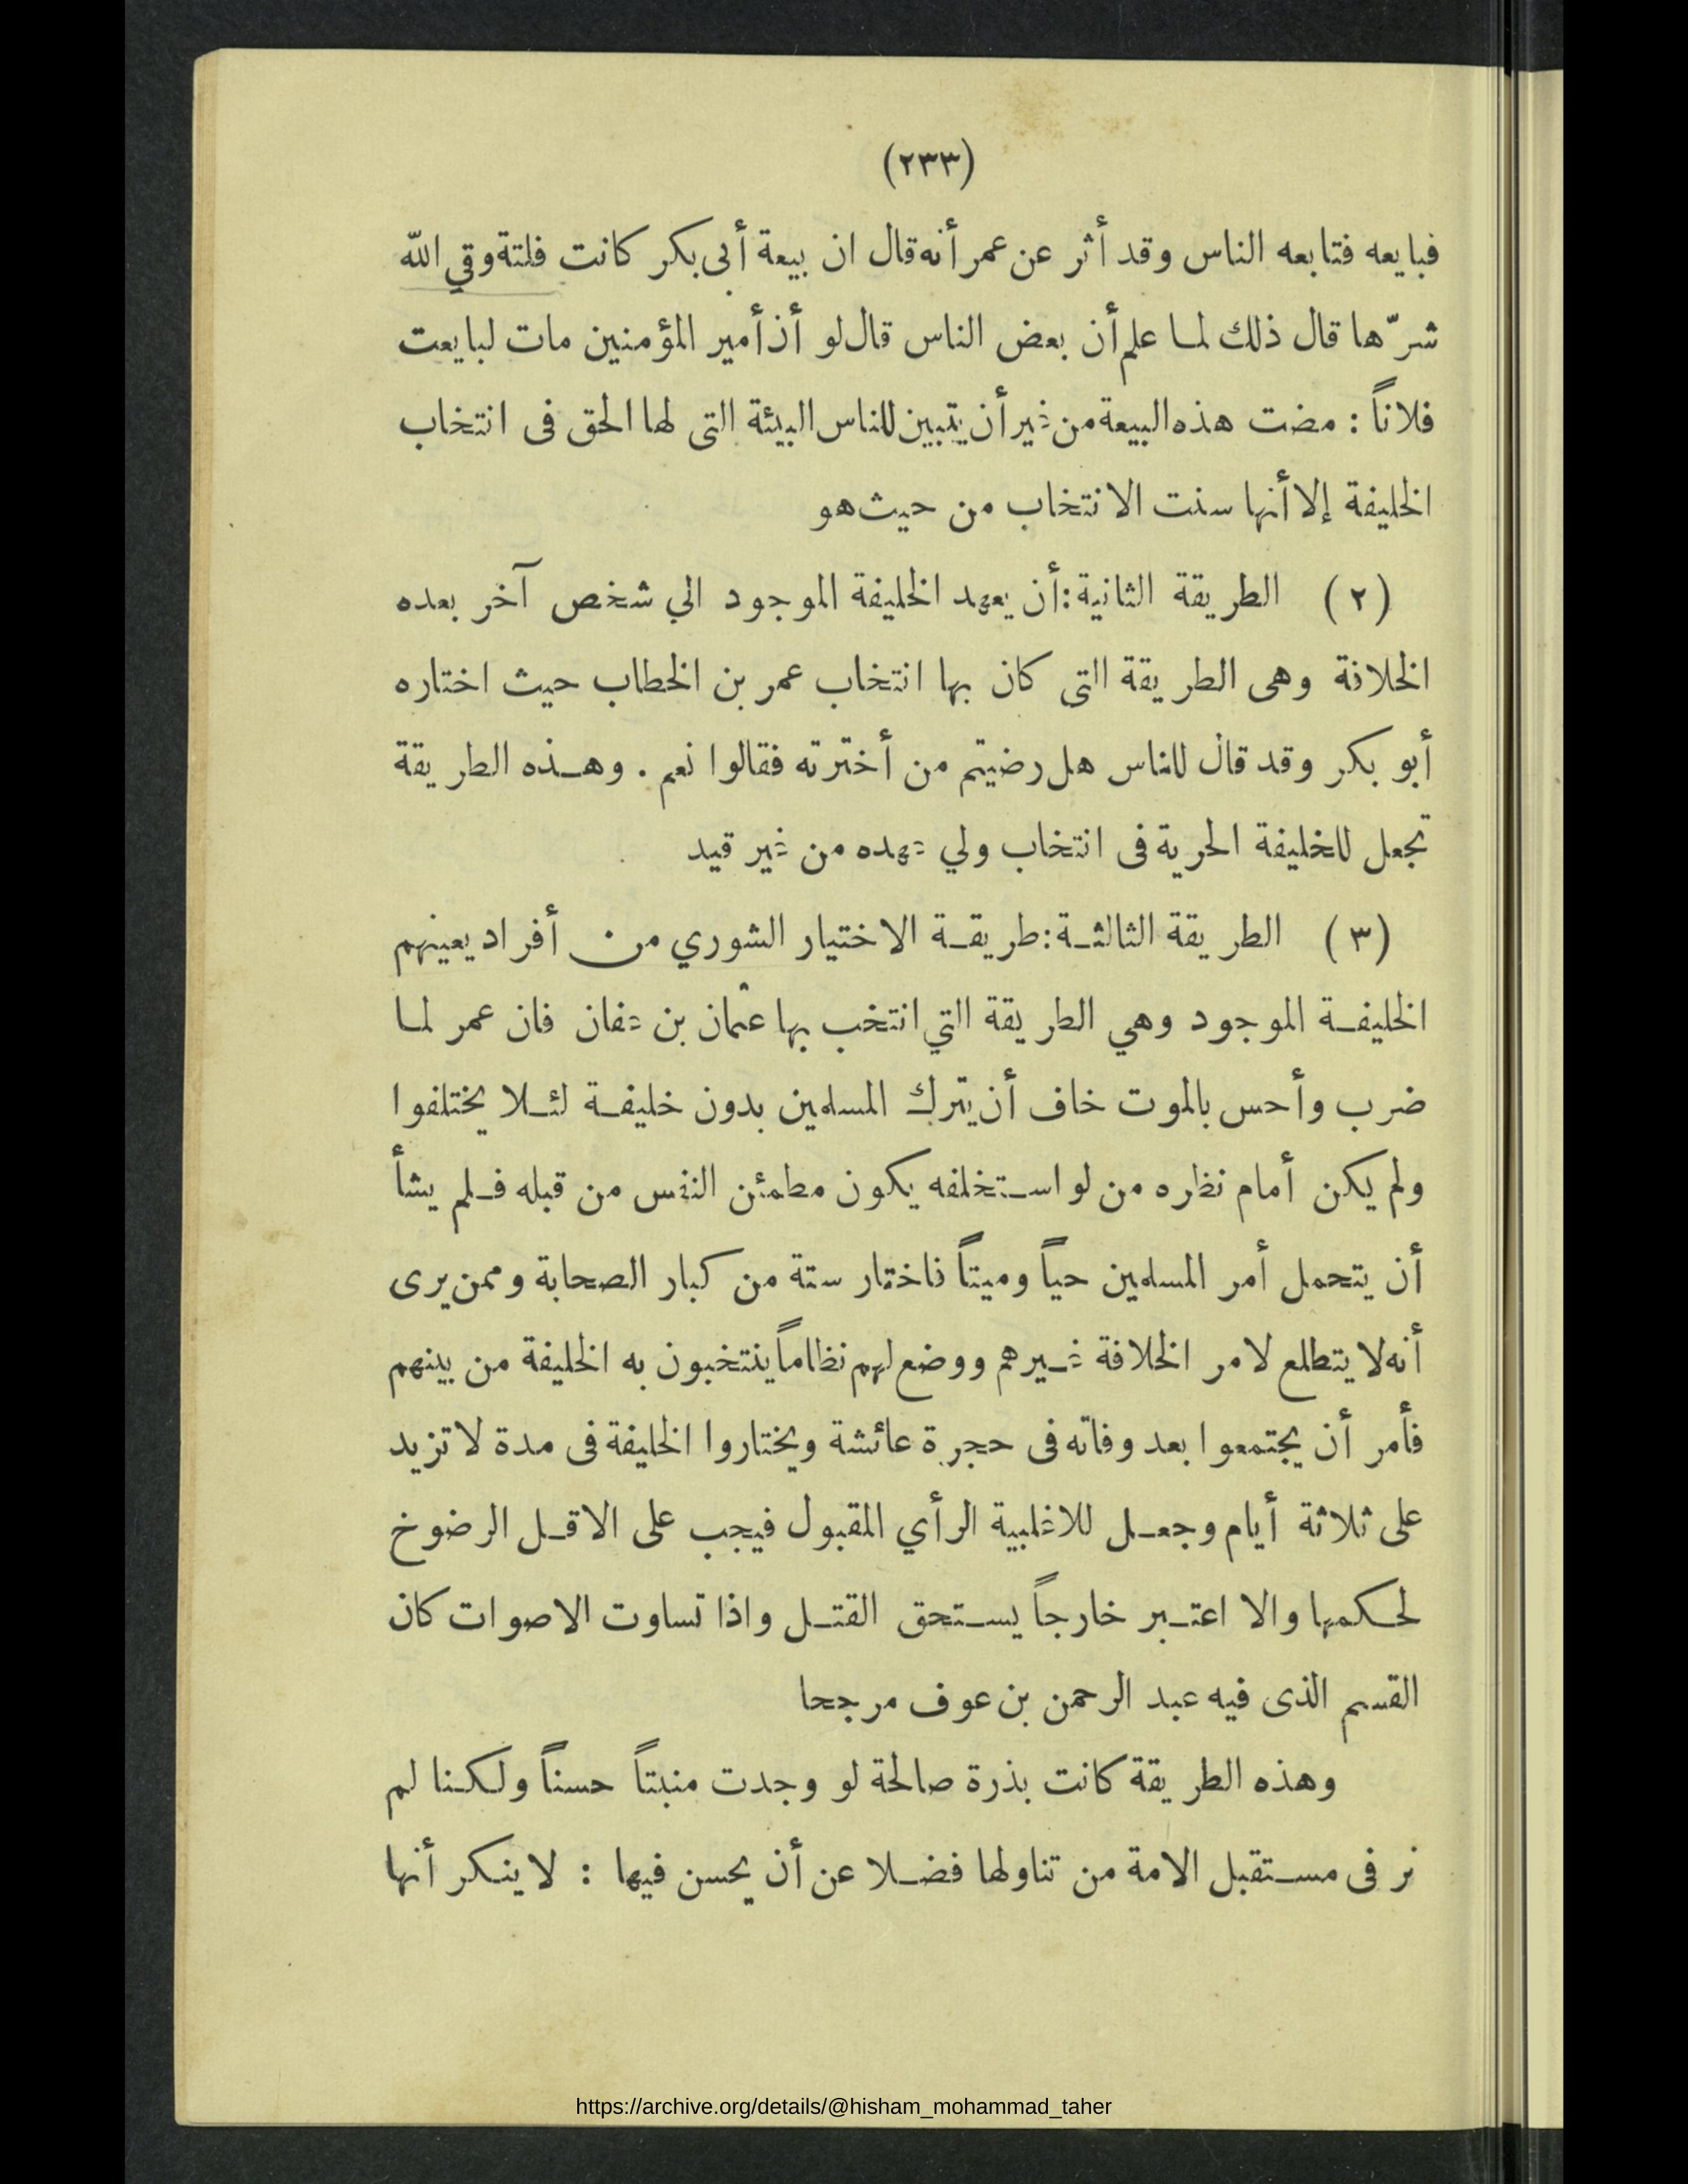 (٢٣٣)
فبايعه فتابعه الناس وقد أثر عن عمر أنه قال ان بيعة أبى بكر كانت فلتة وقي الله
شرّها قال ذلك لما علم أن بعض الناس قال لو أن أمير المؤمنين مات لبايعت
فلاناً : مضت هذه البيعة من غير أن يتبين للناس البيئة التى لها الحق فى انتخاب
الخليفة إلا أنها سنت الانتخاب من حيث هو
(٢) الطريقة الثانية : أن يعهد الخليفة الموجود الي شخص آخر بعده
الخلافة وهى الطريقة التى كان بها انتخاب عمر بن الخطاب حيث اختاره
أبو بكر وقد قال للناس هل رضيتم من أخترته فقالوا نعم . وهذه الطريقة
تجعل للخليفة الحرية فى انتخاب ولي عهده من غير قيد
(٣) الطريقة الثالثة : طريقة الاختيار الشوري من أفراد يعينهم
الخليفة الموجود وهي الطريقة التي انتخب بها عثمان بن عفان فان عمر لما
ضرب وأحس بالموت خاف أن يترك المسلمين بدون خليفة لئلا يختلفوا
ولم يكن أمام نظره من لو استخلفه يكون مطمئن النفس من قبله فلم يشأ
أن يتحمل أمر المسلمين حياً وميتاً فاختار ستة من كبار الصحابة وممن يرى
أنه لا يتطلع لامر الخلافة غيرهم ووضع لهم نظاماً ينتخبون به الخليفة من بينهم
فأمر أن يجتمعوا بعد وفاته فى حجرة عائشة ويختاروا الخليفة فى مدة لا تزيد
على ثلاثة أيام وجعل للاغلبية الرأي المقبول فيجب على الاقل الرضوخ
لحكمها والا اعتبر خارجاً يستحق القتل واذا تساوت الاصوات كان
القسم الذى فيه عبد الرحمن بن عوف مرجحا
وهذه الطريقة كانت بذرة صالحة لو وجدت منبتاً حسناً ولكنا لم
نر فى مستقبل الامة من تناولها فضلا عن أن يحسن فيها : لا ينكر أنها
https://archive.org/details/@hisham_mohammad_taher